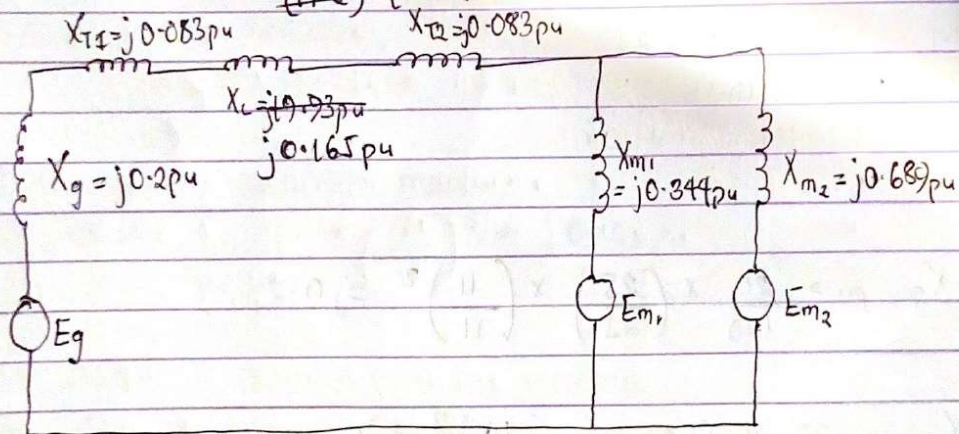 X_T1 = j0.083pu
X_T2 = j0.083pu
X_L = j19.93pu
j0.165pu
X_g = j0.2pu
X_m1
= j0.344pu
X_m2 = j0.689pu
Eg
E_m1
E_m2